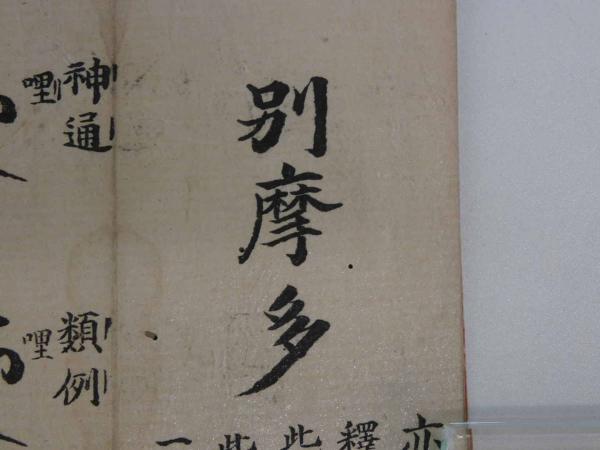 别摩多
亦
釋
此
此
一
神通
哩
類例
哩